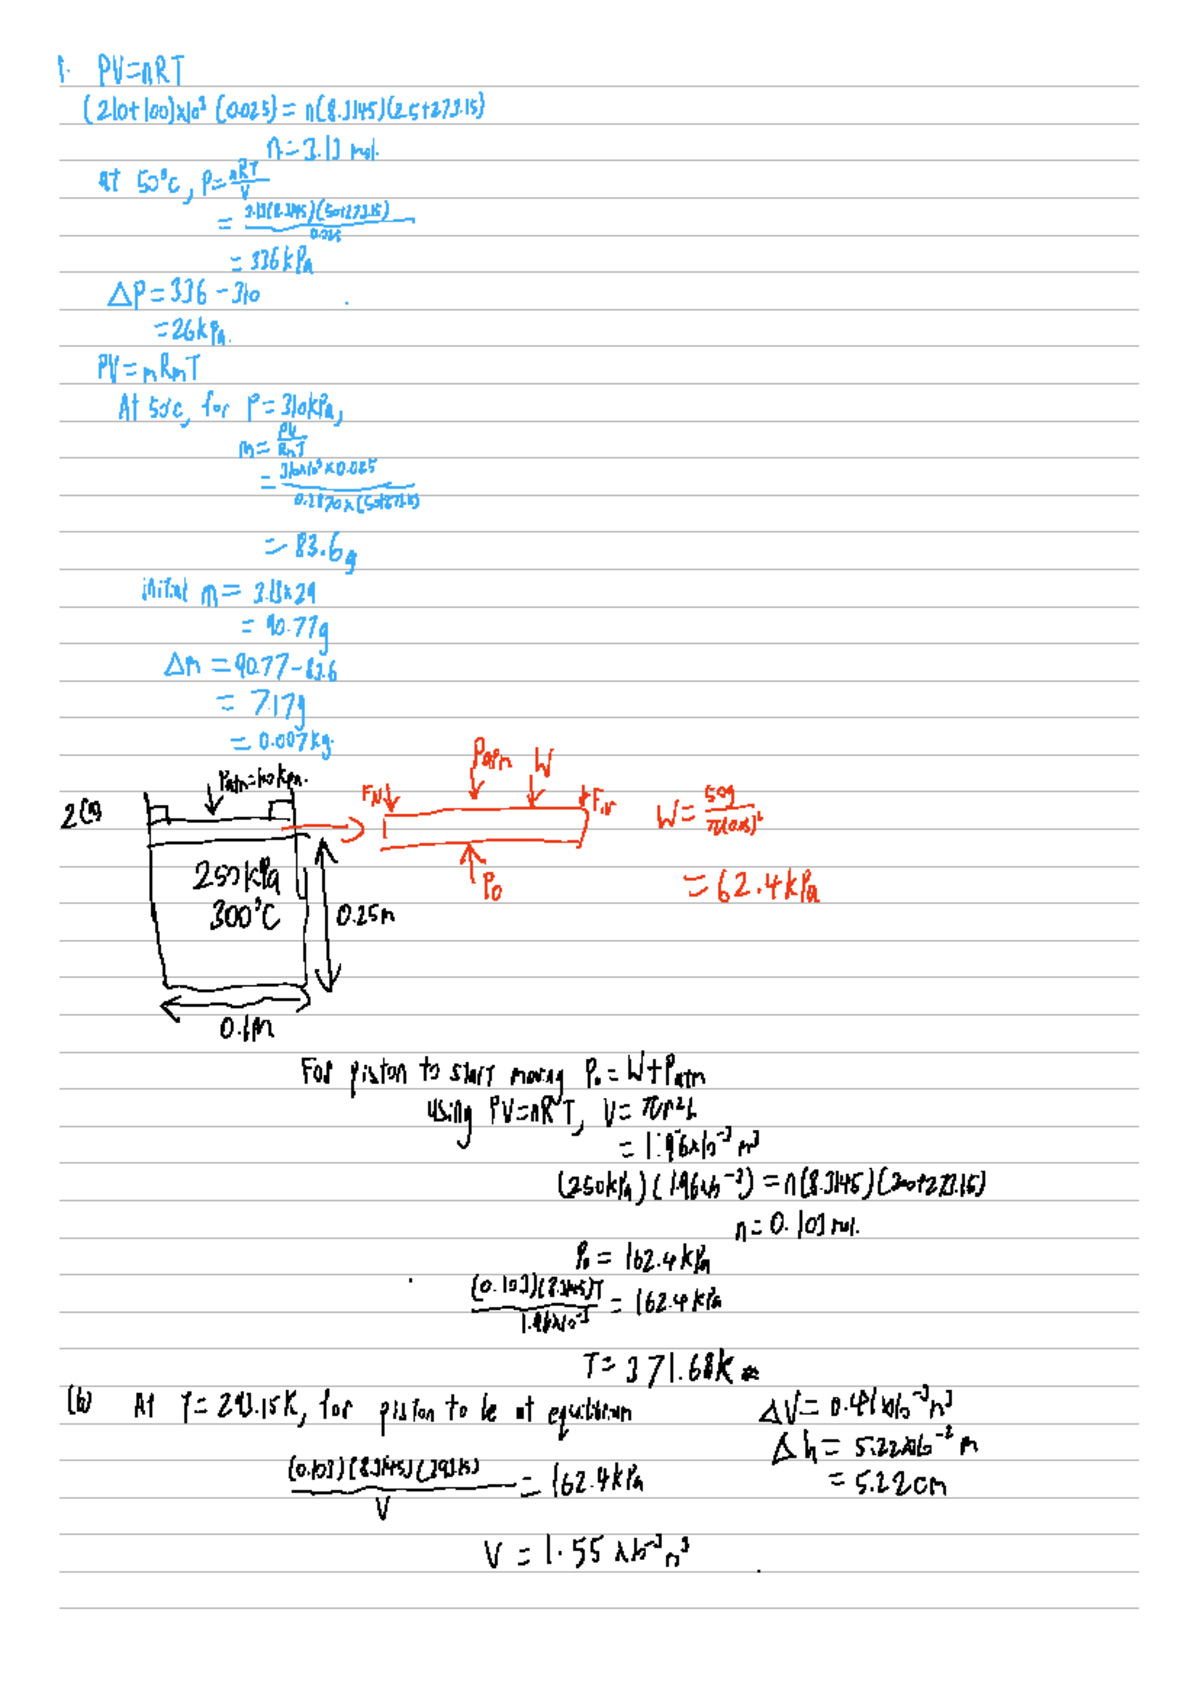 1. PV=nRT
(210+100)x10³ (0.025) = n(8.3145)(25+273.15)
n=3.13 mol.
At 50°C, P=nRT/V
= 3.13(8.3145)(50+273.15)/0.025
= 336kPa
ΔP=336-310
=26kPa.
PV=mRmT
At 50°C, for P=310kPa,
m= PV/RmT
= 310x10³x0.025/0.2870x(50+273.15)
= 83.6g
initial m= 3.13x29
= 90.77g
Δm =90.77-83.6
= 7.17g
= 0.007kg.
2(a)
Patm=100kPa.
250kPa
300°C
0.25m
0.1m
FN
Patm
W
FN
P0
W= 50g/π(0.05)²
=62.4kPa
For piston to start moving P0=W+Patm
using PV=nRT, V=πr²L
= 1.96x10⁻³ m³
(250kPa)(1.96x10⁻³)=n(8.3145)(300+273.15)
n=0.103 mol.
P0= 162.4kPa
(0.103)(8.3145)T/1.96x10⁻³ = 162.4kPa
T= 371.68K
(b) At T=293.15K, for piston to be at equilibrium
(0.103)(8.3145)(293.15)/V = 162.4kPa
V = 1.55 x10⁻³m³
ΔV= 0.41x10⁻³m³
Δh= 5.22x10⁻² m
= 5.22cm